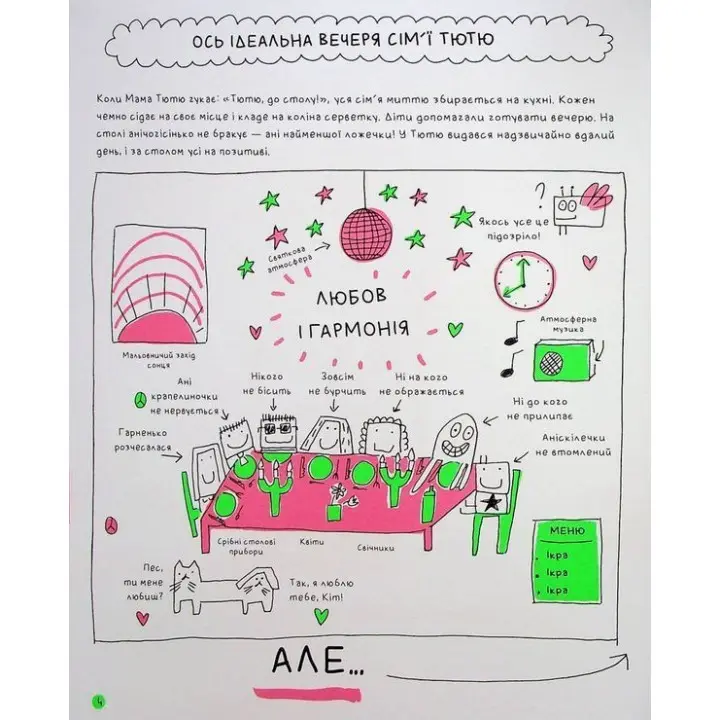 ОСЬ ІДЕАЛЬНА ВЕЧЕРЯ СІМ'Ї ТЮТЮ
Коли Мама Тютю гукає: «Тютю, до столу!», уся сім'я миттю збирається на кухні. Кожен
чемно сідає на своє місце і кладе на коліна серветку. Діти допомагали готувати вечерю. На
столі анічогісінько не бракує — ані найменшої ложечки! У Тютю видався надзвичайно вдалий
день, і за столом усі на позитиві.
?
Якось усе це
підозріло!
Святкова
атмосфера
ЛЮБОВ
І ГАРМОНІЯ
Атмосферна
музика
Мальовничий захід
сонця
Ані
крапелиночки
не нервується
Нікого
не бісить
Зовсім
не бурчить
Ні на кого
не ображається
Ні до кого
не прилипає
Гарненько
розчесалася
Аніскілечки
не втомлений
Срібні столові
прибори
Квіти
Свічники
МЕНЮ
Ікра
Ікра
Ікра
Пес,
ти мене
любиш?
Так, я люблю
тебе, Кіт!
АЛЕ...
4